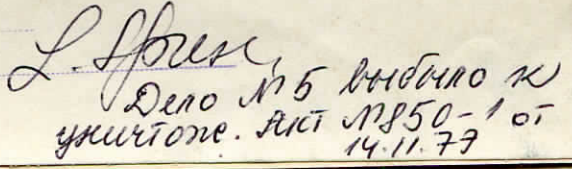 Дело №5 выбыло к
уничтож. Акт №850-1 от
14.11.77